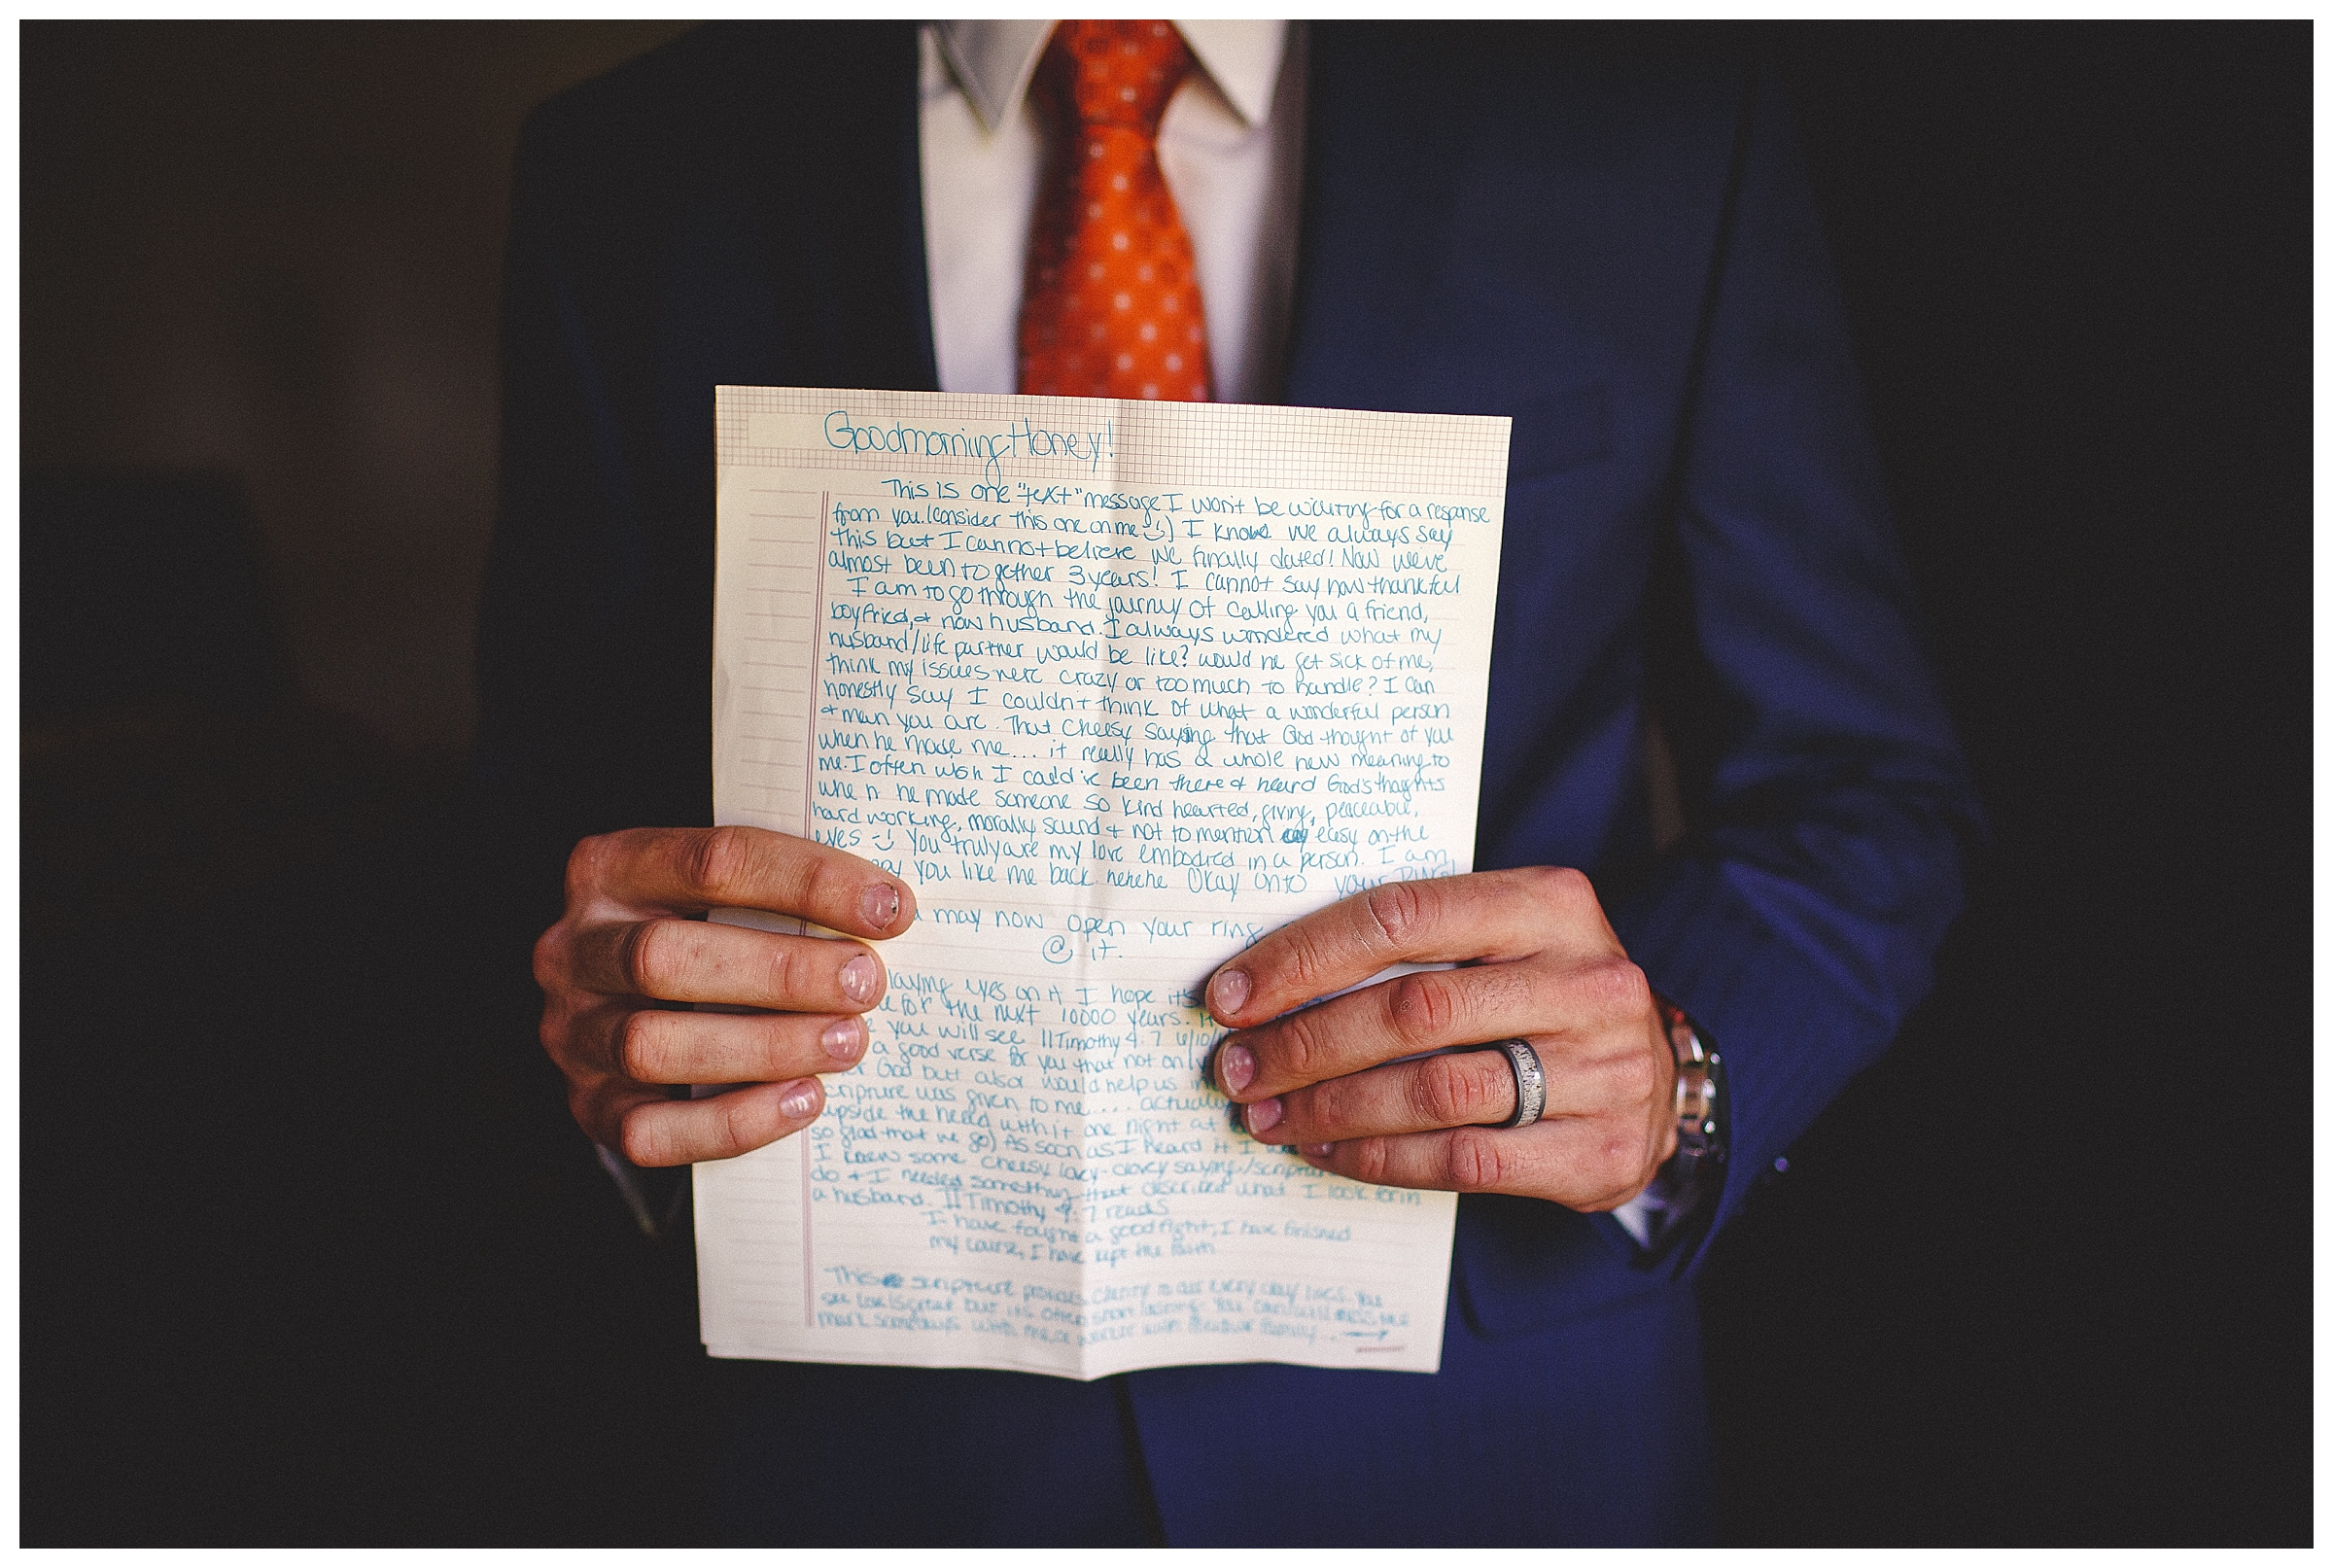 Goodmorning Honey!
This is one "text" message I won't be waiting for a response
from you. (Consider this one on me :) ) I know we always say
this but I cannot believe we finally dated! Now we've
almost been together 3 years! I cannot say how thankful
I am to go through the journey of calling you a friend,
boyfried, & now husband. I always wondered what my
husband/life partner would be like? would he get sick of me,
think my issues were crazy or too much to handle? I can
honestly say I couldn't think of what a wonderful person
& man you are. That cheesy saying that God thought of you
when he made me... it really has a whole new meaning to
me. I often wish I could've been there & heard God's thoughts
when he made someone so kind hearted, giving, peaceable,
hard working, morally sound & not to mention easy on the
eyes :) You truly are my love embodied in a person. I am
you like me back hehehe Okay onto your RING!
may now open your ring
@ it.
laying eyes on it I hope it's
for the next 10000 years.
you will see II Timothy 4:7
a good verse for you that not only
God but also would help us
scripture was given to me.... actually
upside the head with it one night at
so glad that we go) As soon as I heard it I
I knew some cheesy lovey-dovey saying/
do & I needed something that described what I look for in
a husband. II Timothy 4:7 reads
I have fought a good fight, I have finished
my course, I have kept the faith
This scripture provides clarity in our every day lives. You
see but its often
with me, a